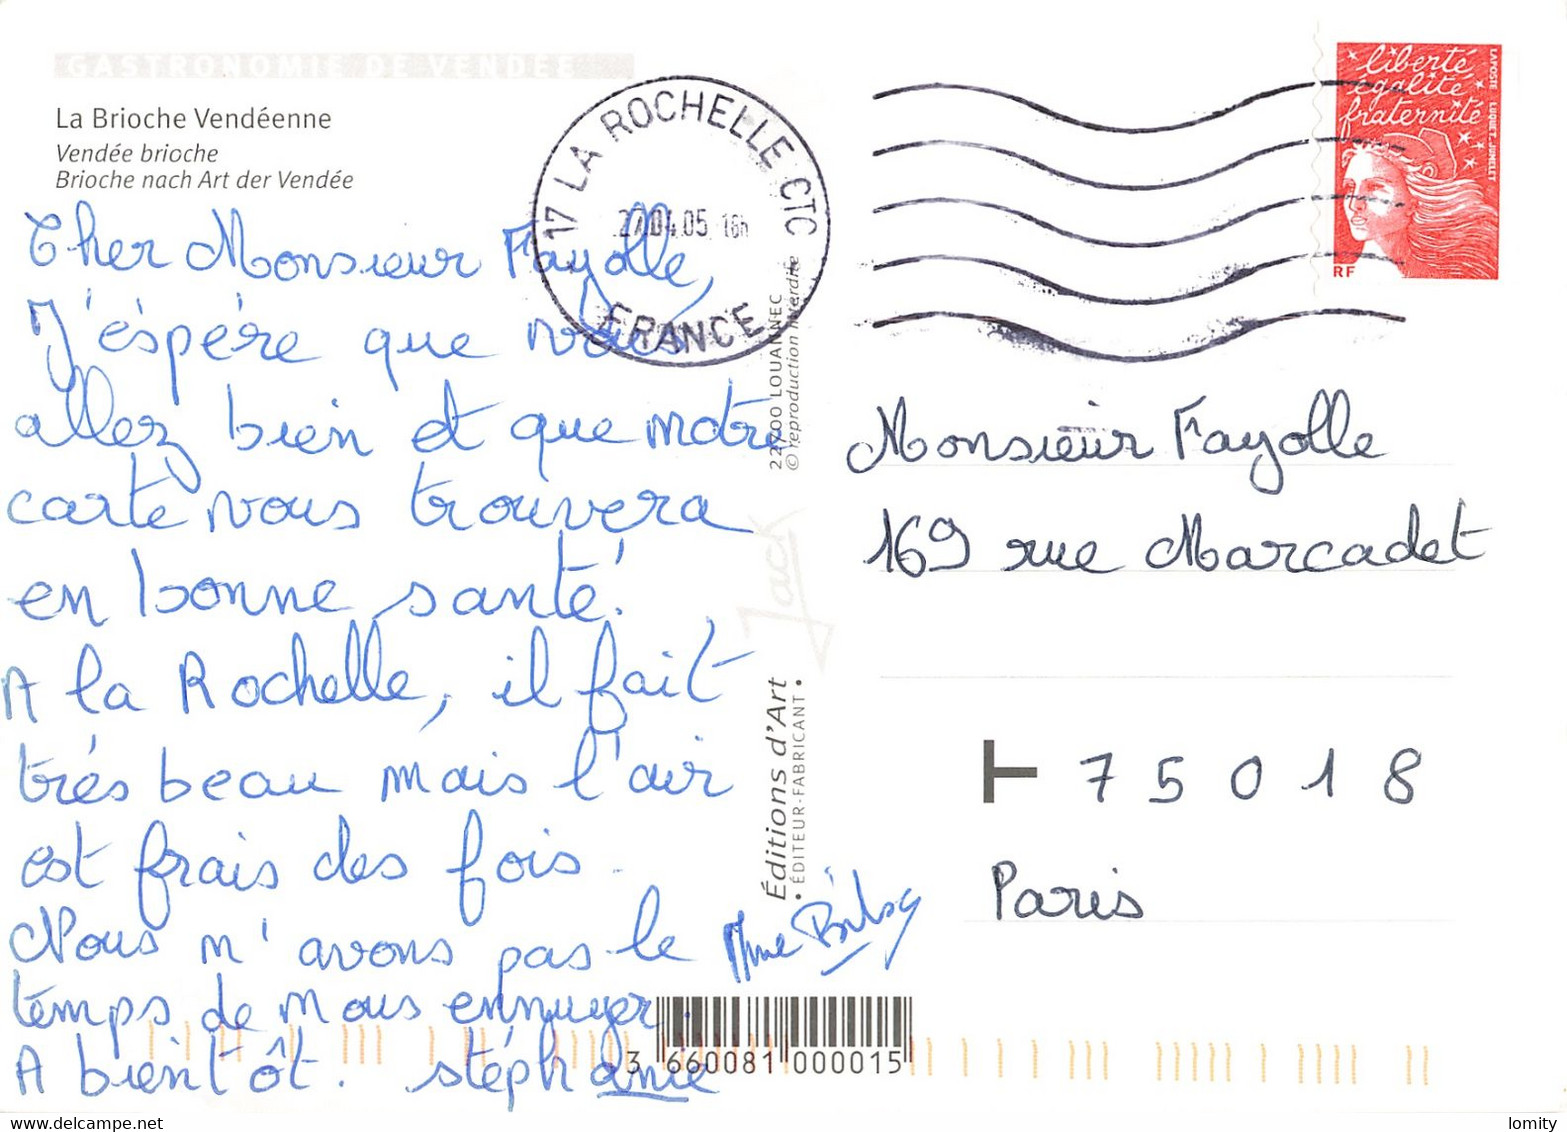 GASTRONOMIE DE VENDEE
La Brioche Vendéenne
Vendée brioche
Brioche nach Art der Vendée
Cher Monsieur Fayolle,
J'éspére que vous
allez bien et que notre
carte vous trouvera
en bonne santé.
A la Rochelle, il fait
trés beau mais l'air
est frais des fois.
Nous n'avons pas le
temps de nous ennuyer.
A bientôt. stéphanie
Mme
17 LA ROCHELLE CTC
27.04.05 16h
FRANCE
22700 LOUANNEC
© reproduction interdite
Jack
Éditions d'Art
• ÉDITEUR-FABRICANT •
3 660081 000015
liberté
égalité
fraternité
LAPOSTE LUQUET. JUMELET
RF
Monsieur Fayolle
169 rue Marcadet
T 75018
Paris
delcampe.net
lomity